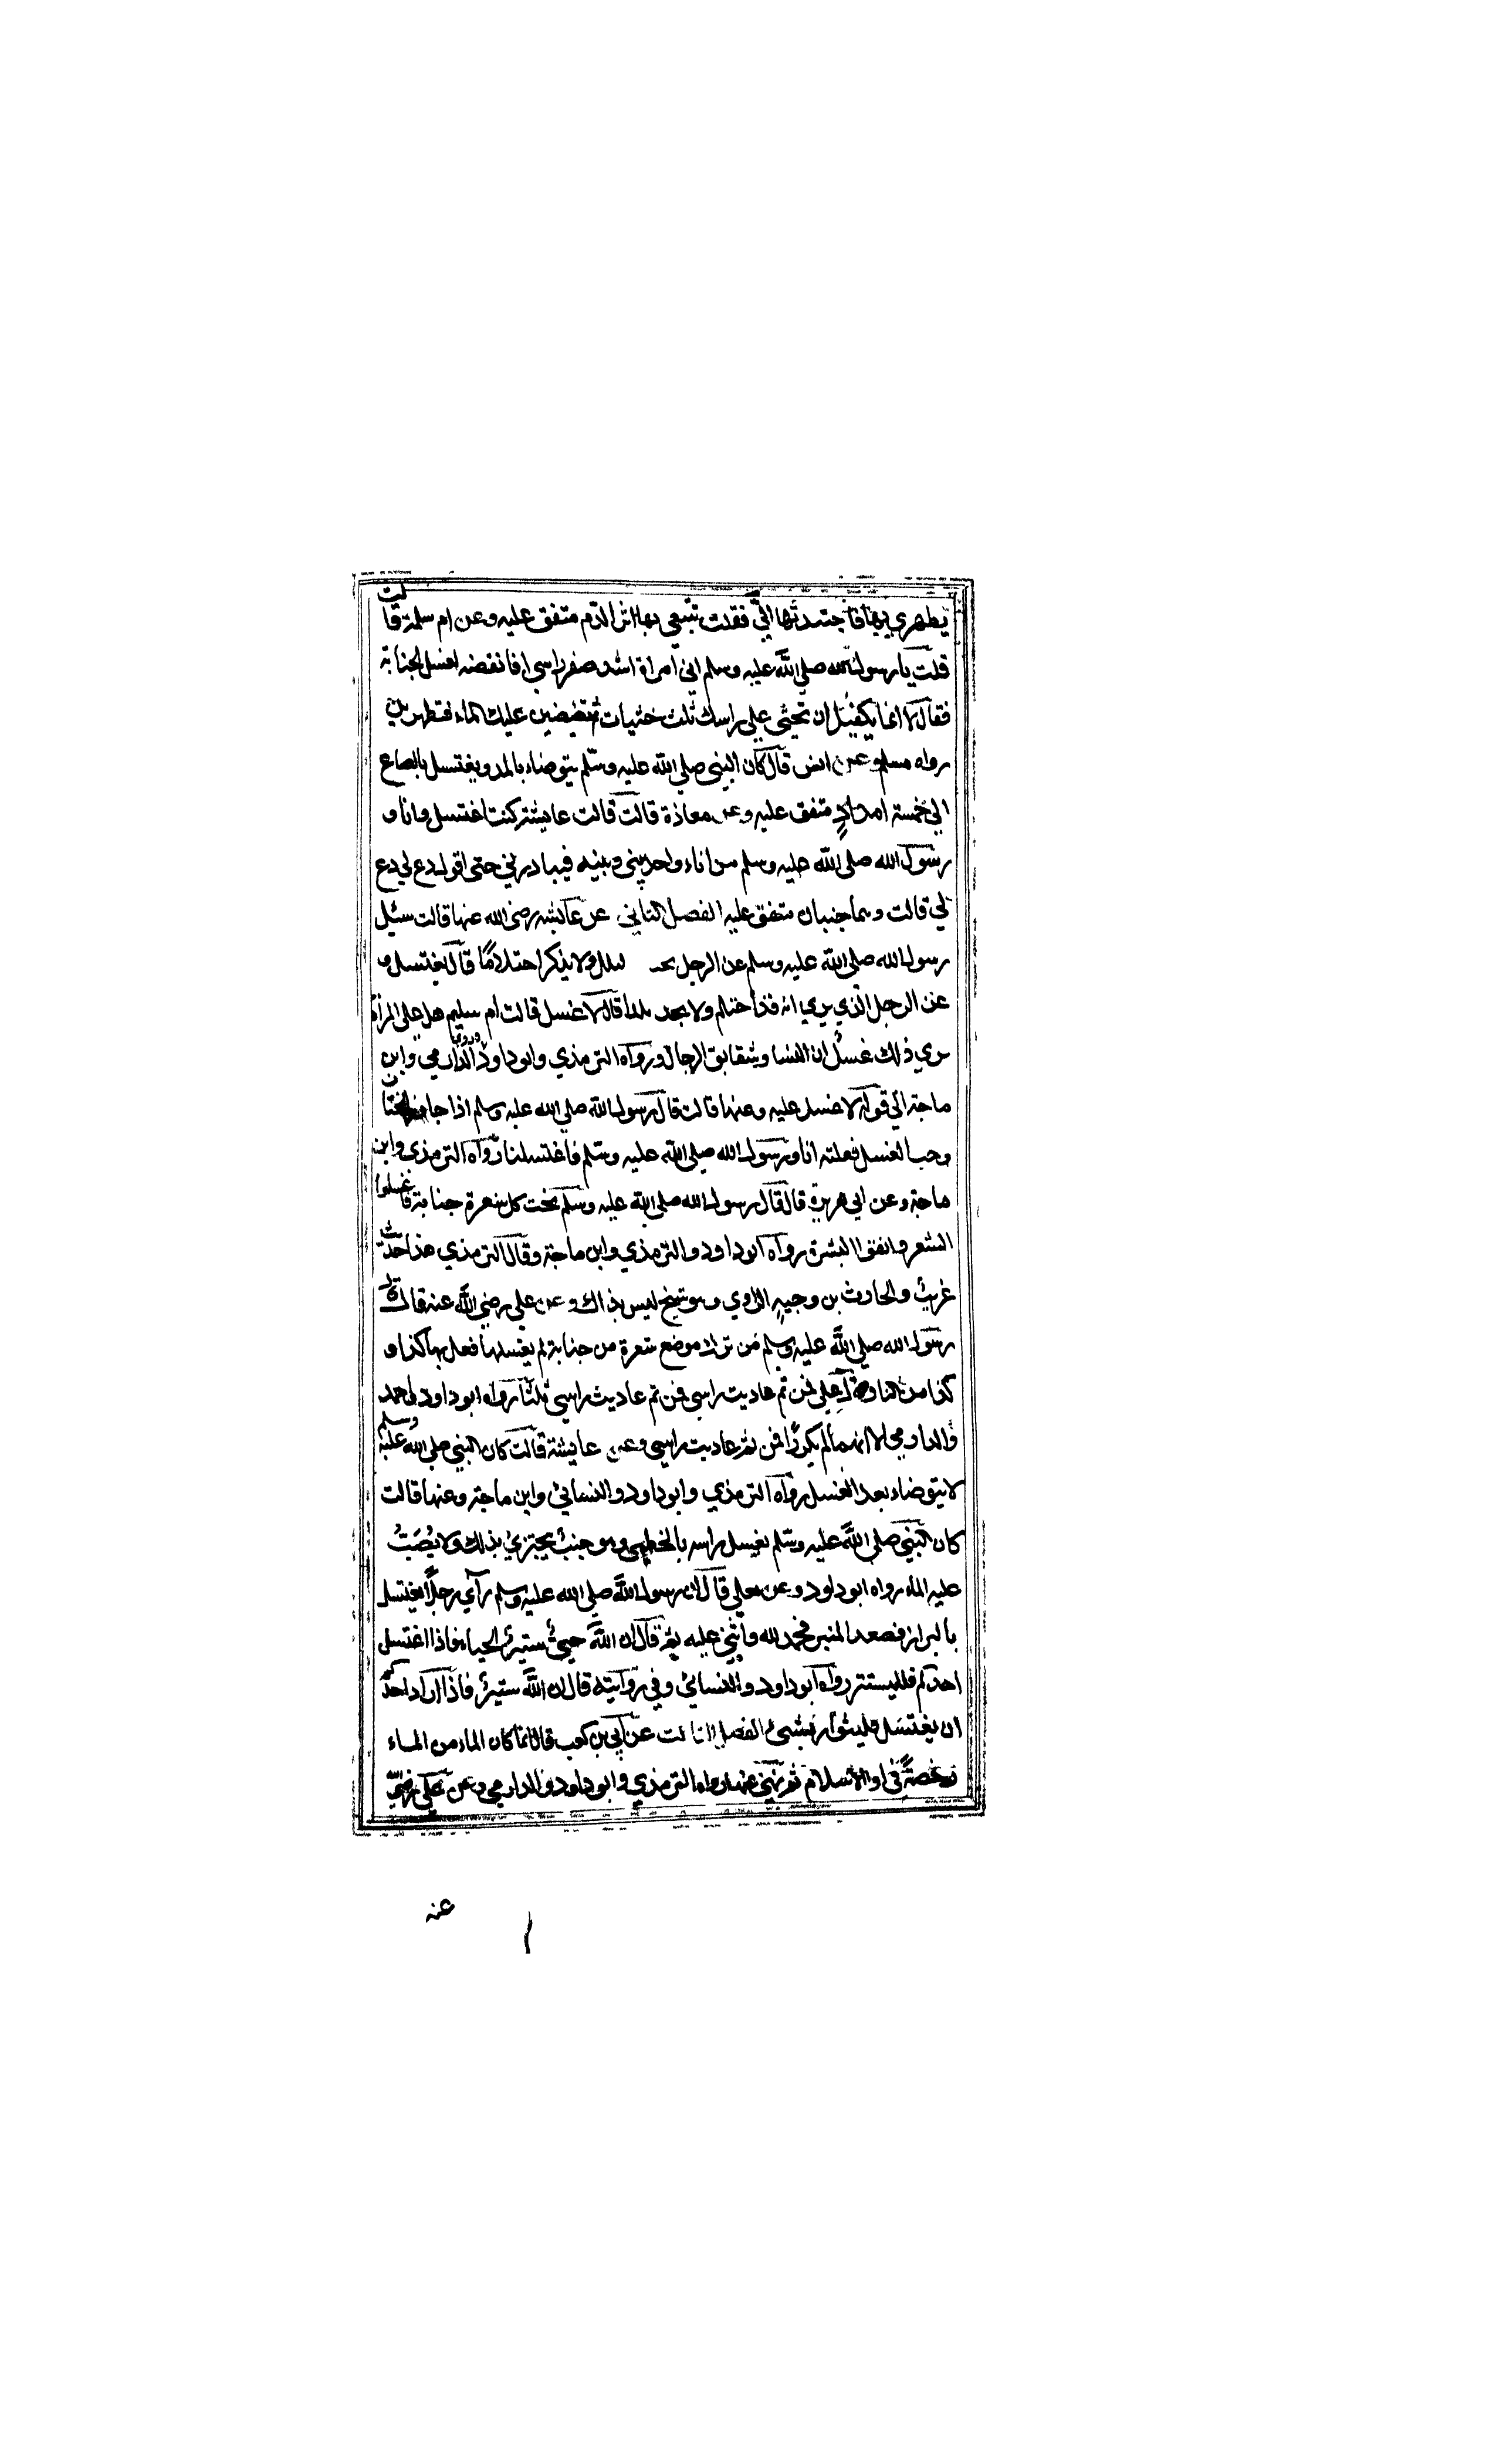 تطهري بها فاجتذبتها اليّ فقلت تتبعي بها اثر الدم متفق عليه وعن ام سلمة قالت
قلت يا رسول الله صلي الله عليه وسلم اني امراة اشد ضفر راسي افانقضه لغسل الجنابة
فقال لا انما يكفيك ان تحثي علي راسك ثلث حثيات ثم تفيضين عليك الماء فتطهرين
رواه مسلم وعن انس قال كان النبي صلي الله عليه وسلم يتوضاء بالمد ويغتسل بالصاع
الي خمسة امداد متفق عليه وعن معاذة قالت قالت عايشة كنت اغتسل وانا و
رسول الله صلي الله عليه وسلم من اناء واحد بيني وبينه فيبادرني حتي اقول دع لي دع
لي قالت وهما جنبان متفق عليه الفصل الثاني عن عايشه رضي الله عنها قالت سئل
رسول الله صلي الله عليه وسلم عن الرجل يجد البلل ولا يذكر احتلامًا قال يغتسل و
عن الرجل الذي يري انه قد احتلم ولا يجد بللا قال لا غسل قالت ام سليم هل علي المراة
تري ذلك غسلٌ ان النسا شقايق الرجال رواه الترمذي وابو داود وروي الدارمي وابن
ماجة الي قوله لا غسل عليه وعنها قالت قال رسول الله صلي الله عليه وسلم اذا جاوز الختان
وجب الغسل فعلته انا ورسول الله صلي الله عليه وسلم فاغتسلنا رواه الترمذي وابن
ماجة وعن ابي هريرة قال قال رسول الله صلي الله عليه وسلم تحت كل شعرة جنابة فاغسلوا
الشعر وانقوا البشرة رواه ابو داود والترمذي وابن ماجة وقال الترمذي هذا حديث
غريبٌ والحارث بن وجيهٍ الراوي وهو شيخ ليس بذاك وعن علي رضي الله عنه قال قال
رسول الله صلي الله عليه وسلم من ترك موضع شعرة من جنابة لم يغسلها فعل بها كذا و
كذا من النار قال علي فمن ثم عاديت راسي فمن ثم عاديت راسي ثلثًا رواه ابو داود احمد
والدارمي الا انهما لم يكررا فمن ثم عاديت راسي وعن عايشة قالت كان النبي صلي الله عليه وسلم
لا يتوضاء بعد الغسل رواه الترمذي وابو داود والنسائي وابن ماجة وعنها قالت
كان النبي صلي الله عليه وسلم يغسل راسه بالخطمي وهو جنبٌ يجتزئ بذلك ولا يُصَبُّ
عليه الماء رواه ابو داود وعن يعلي قال ان رسول الله صلي الله عليه وسلم رآي رجلًا يغتسل
بالبراز فصعد المنبر فحمد الله واثني عليه ثم قال ان الله حييٌ ستيرٌ الحياء فاذا اغتسل
احدكم فليستتر رواه ابو داود والنسائي وفي روايته قال ان الله ستيرٌ فاذا اراد احدكم
ان يغتسل فليتوار بشيءٍ الفصل الثالث عن ابي بن كعب قال انما كان الماء من الماء
رخصةً في اول الاسلام ثم نهي عنها رواه الترمذي وابو داود والدارمي وعن علي رضي الله
عنه